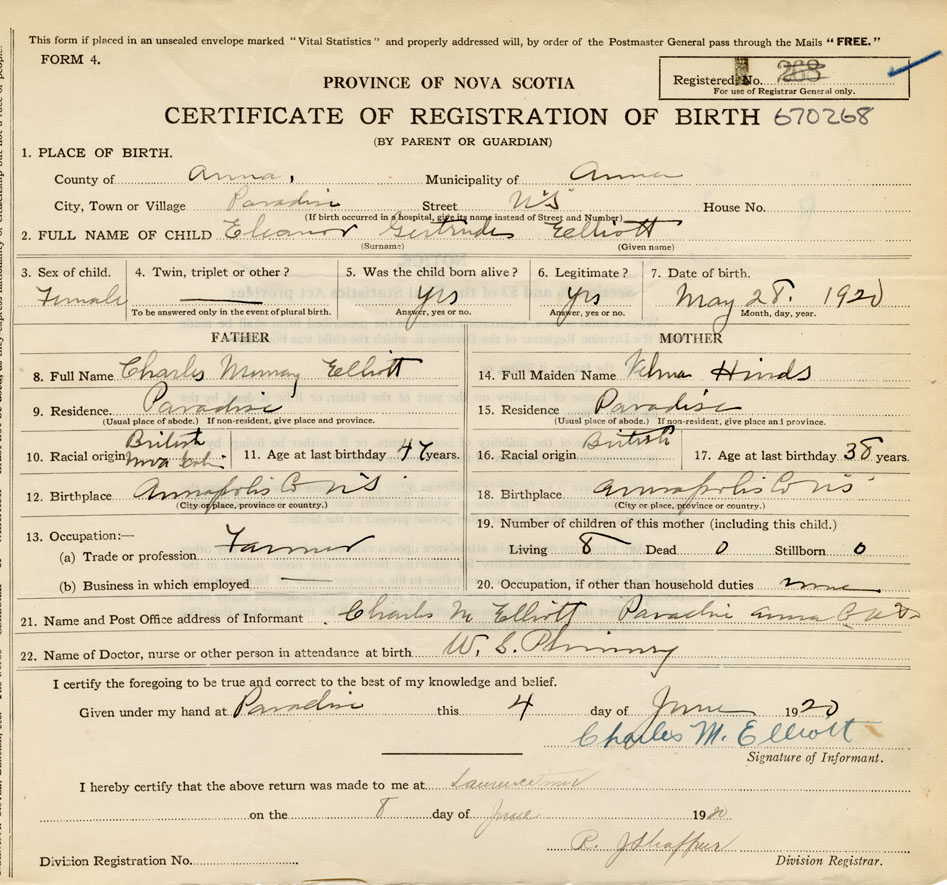 This form if placed in an unsealed envelope marked "Vital Statistics" and properly addressed will, by order of the Postmaster General pass through the Mails "FREE."
FORM 4.
Registered No. 268
For use of Registrar General only.
PROVINCE OF NOVA SCOTIA
CERTIFICATE OF REGISTRATION OF BIRTH 670268
(BY PARENT OR GUARDIAN)
1. PLACE OF BIRTH.
County of Anna, Municipality of Anna
City, Town or Village Paradise Street N S House No.
(If birth occurred in a hospital, give its name instead of Street and Number)
2. FULL NAME OF CHILD Eleanor Gertrude Elliott
(Surname) (Given name)
3. Sex of child. 4. Twin, triplet or other? 5. Was the child born alive? 6. Legitimate? 7. Date of birth.
Female yes yes May 28. 1920
To be answered only in the event of plural birth. Answer, yes or no. Answer, yes or no. Month, day, year.
FATHER MOTHER
8. Full Name Charles Murray Elliott 14. Full Maiden Name Velma Hinds
9. Residence. Paradise 15. Residence Paradise
(Usual place of abode.) If non-resident, give place and province. (Usual place of abode.) If non-resident, give place and province.
10. Racial origin British Nova Scotia 11. Age at last birthday 47 years. 16. Racial origin British 17. Age at last birthday 38 years.
12. Birthplace Annapolis Co N S 18. Birthplace Annapolis Co N S
(City or place, province or country.) (City or place, province or country.)
13. Occupation:— 19. Number of children of this mother (including this child.)
(a) Trade or profession Farmer Living 8 Dead 0 Stillborn 0
(b) Business in which employed 20. Occupation, if other than household duties none
21. Name and Post Office address of Informant Charles M Elliott Paradise Anna Co N S
22. Name of Doctor, nurse or other person in attendance at birth W. S. Phinney
I certify the foregoing to be true and correct to the best of my knowledge and belief.
Given under my hand at Paradise this 4 day of June 1920
Charles M. Elliott
Signature of Informant.
I hereby certify that the above return was made to me at Lawrencetown
on the 8 day of June 1920
Division Registration No. Division Registrar.